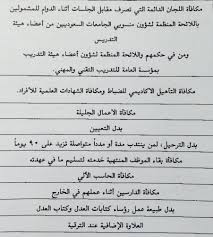 مكافأة اللجان الدائمة التي تصرف مقابل الجلسات أثناء الدوام للمشمولين
باللائحة المنظمة لشؤون منسوبي الجامعات السعوديين من أعضاء هيئة
التدريس
ومن في حكمهم واللائحة المنظمة لشؤون أعضاء هيئة التدريب
بمؤسسة العامة للتدريب التقني والمهني.
مكافأة التأهيل الأكاديمي للضباط ومكافأة الشهادات العلمية للأفراد.
مكافأة الأعمال الجليلة
بدل التعيين
بدل الترحيل؛ لمن ينتدب مدة أو مدداً متواصلة تزيد على ٩٠ يوماً
مكافأة بقاء الموظف المنتهية خدمته لتسليم ما في عهدته
مكافأة الحاسب الآلي
مكافأة الدارسين أثناء عملهم في الخارج
بدل طبيعة عمل رؤساء كتابات العدل وكتاب العدل
العلاوة الإضافية عند الترقية